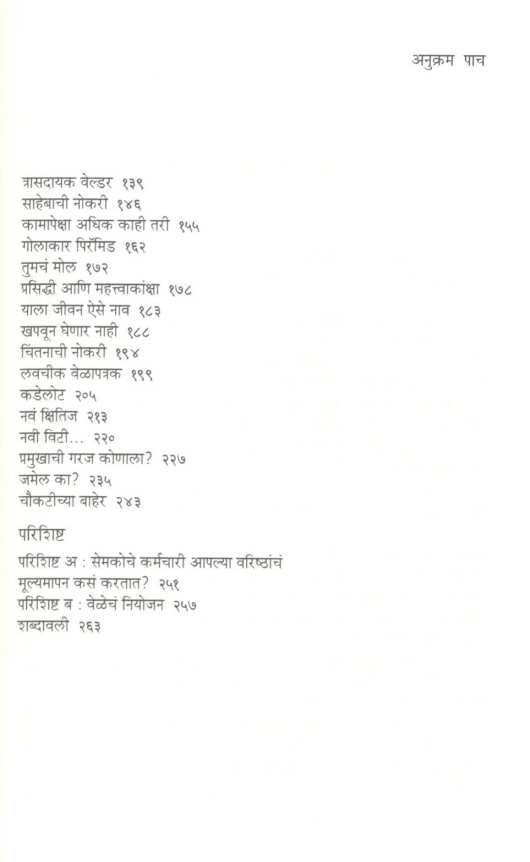 अनुक्रम पाच
त्रासदायक वेल्डर १३९
साहेबाची नोकरी १४६
कामापेक्षा अधिक काही तरी १५५
गोलाकार पिरॅमिड १६२
तुमचं मोल १७२
प्रसिद्धी आणि महत्त्वाकांक्षा १७८
याला जीवन ऐसे नाव १८३
खपवून घेणार नाही १८८
चिंतनाची नोकरी १९४
लवचीक वेळापत्रक १९९
कडेलोट २०५
नवं क्षितिज २१३
नवी विटी... २२०
प्रमुखाची गरज कोणाला? २२७
जमेल का? २३५
चौकटीच्या बाहेर २४३
परिशिष्ट
परिशिष्ट अ : सेमकोचे कर्मचारी आपल्या वरिष्ठांचं
मूल्यमापन कसं करतात? २५१
परिशिष्ट ब : वेळेचं नियोजन २५७
शब्दावली २६३